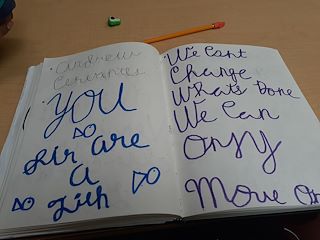 Andrew
Cervantes
YOU
Do
Sir are
A
Do Fish Do
We Can't
Change
What's Done
We Can
Only
Move On